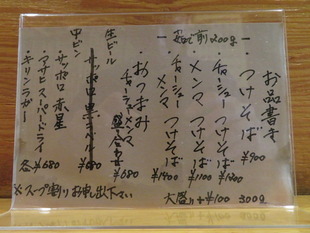 お品書き
つけそば ¥900
チャーシューつけそば ¥1200
メンマつけそば ¥1100
チャーシューメンマつけそば ¥1400
ゆで前200g
大盛り+¥100 300g
おつまみ
チャーシューメンマ盛合せ ¥680
生ビール
サッポロ黒ラベル ¥680
中ビン
・サッポロ赤星
・アサヒスーパードライ
・キリンラガー
各¥680
※スープ割りお申し出下さい